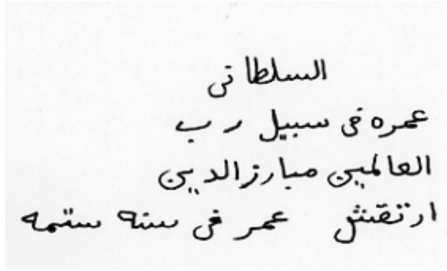 السلطانى
عمره فى سبيل رب
العالمين مبارزالدين
ارتقش عمر فى سنه ستمه